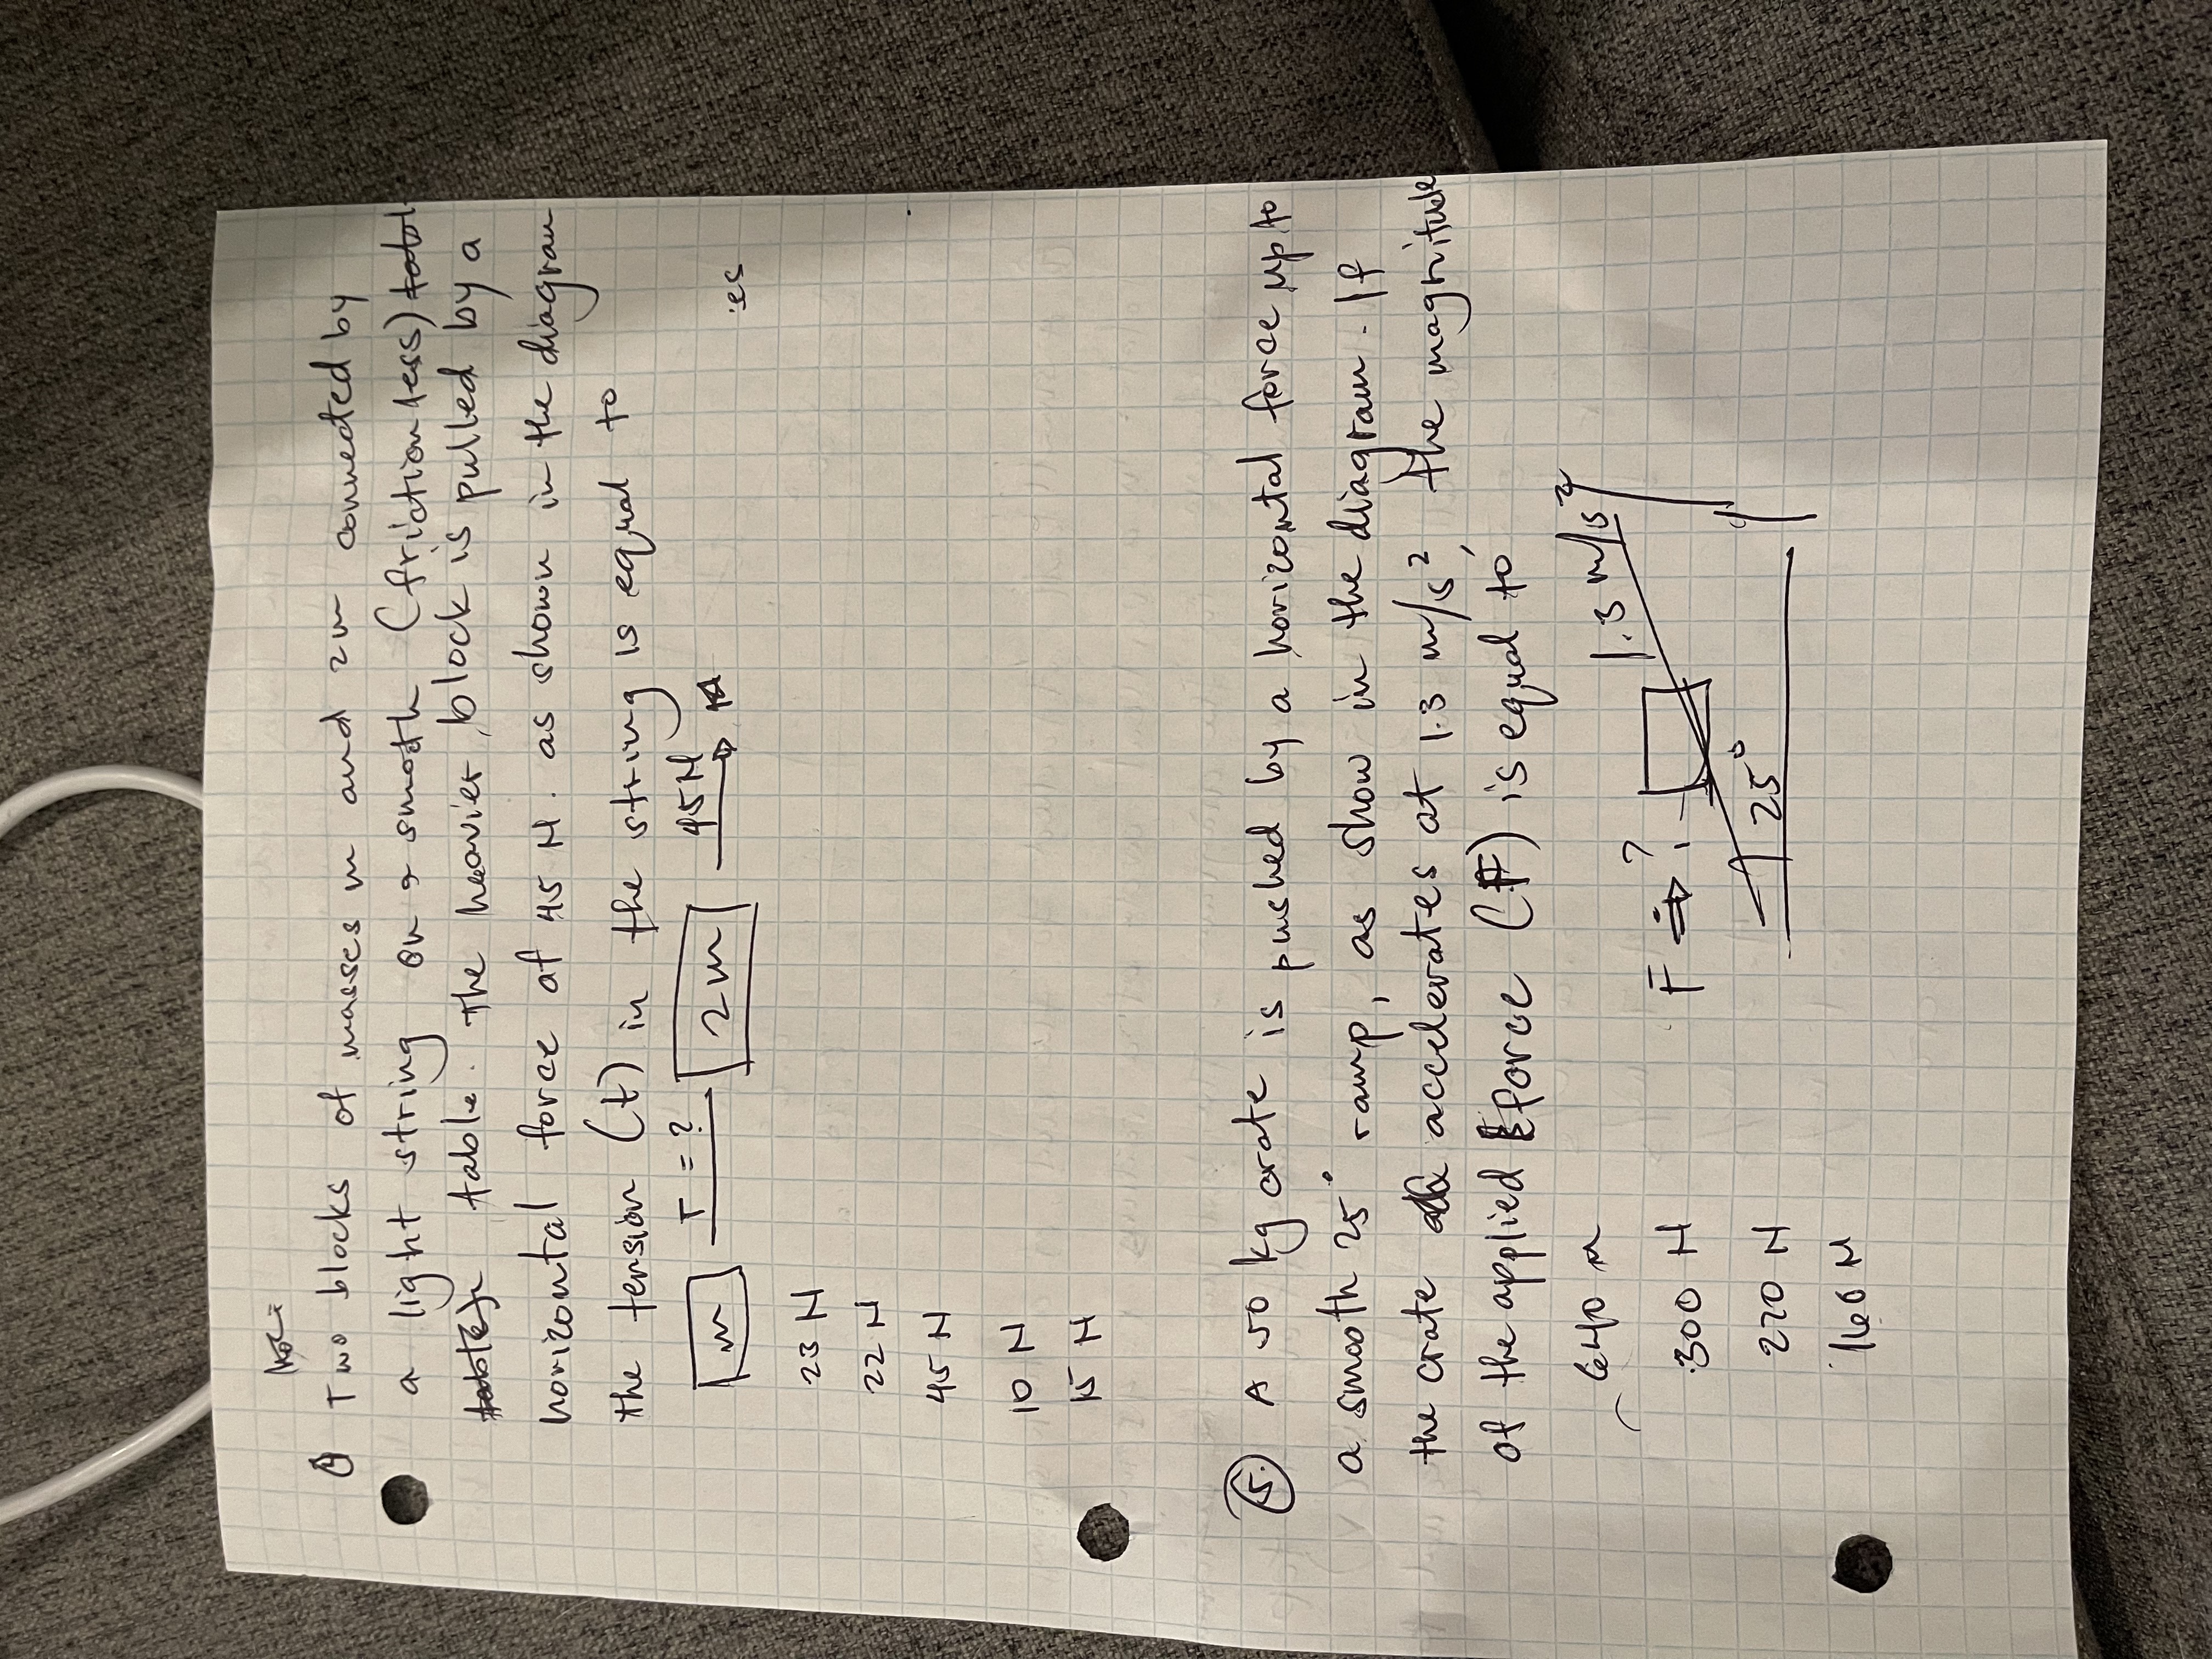 Two blocks of masses m and 2m connected by
a light string on a smooth (frictionless)
table. The heavier block is pulled by a
horizontal force of 45 N. as shown in the diagram
the tension (t) in the string is equal to
m T = ? 2m 45 N
es
23 N
22 N
45 N
10 N
15 N
5. A 50 kg crate is pushed by a horizontal force up to
a smooth 25° ramp, as show in the diagram. If
the crate accelerates at 1.3 m/s², the magnitude
of the applied force (F) is equal to
640 N
300 N
220 N
160 N
F ?
1.3 m/s²
25°